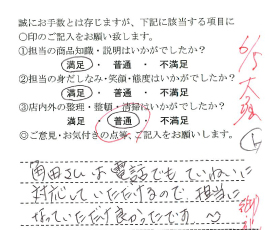 誠にお手数とは存じますが、下記に該当する項目に
○印のご記入をお願い致します。
①担当の商品知識・説明はいかがでしたか?
満足 ・ 普通 ・ 不満足
②担当の身だしなみ・笑顔・態度はいかがでしたか?
満足 ・ 普通 ・ 不満足
③店内外の整理・整頓・清掃はいかがでしたか?
満足 ・ 普通 ・ 不満足
◎ご意見・お気付きの点等、ご記入をお願いします。
角田さんは電話でもていねいに
対応していただけるので、担当に
なっていただけ良かったです